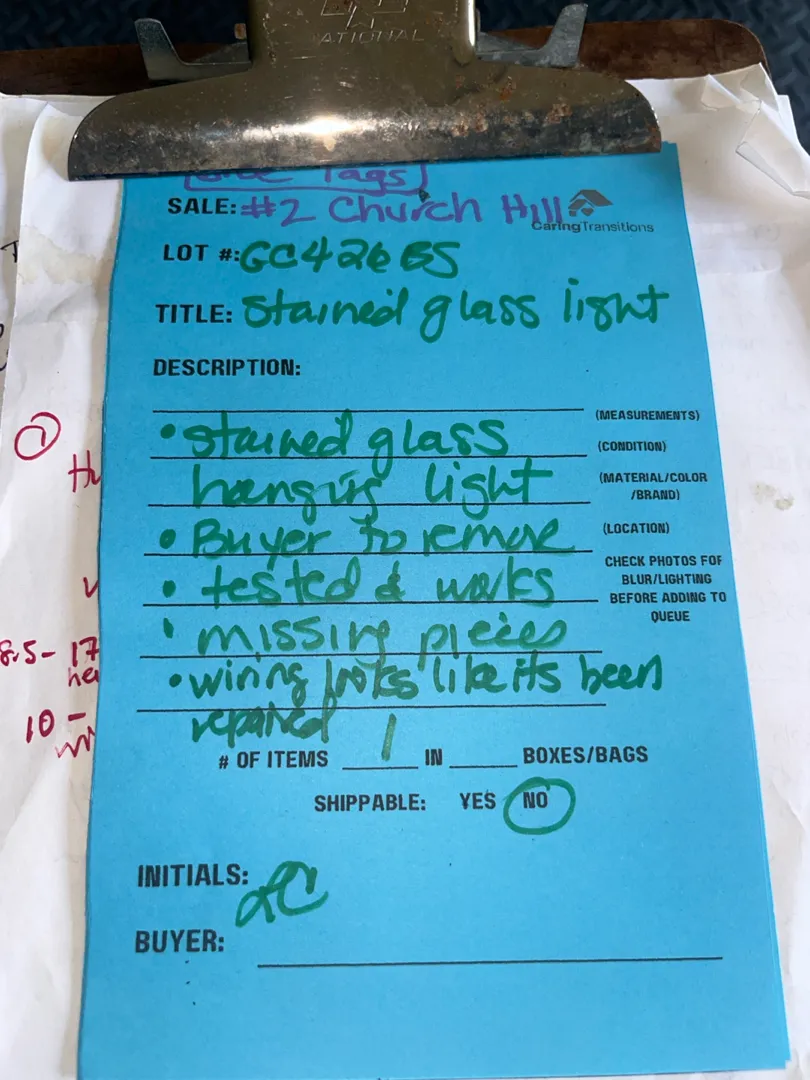 ATIONAL
Tags
SALE: #2 Church Hill
CaringTransitions
LOT #: GC426BS
TITLE: Stained glass light
DESCRIPTION:
(MEASUREMENTS)
• stained glass
(CONDITION)
hanging light
(MATERIAL/COLOR
/BRAND)
• Buyer to remove
(LOCATION)
• tested & works
CHECK PHOTOS FOR
BLUR/LIGHTING
BEFORE ADDING TO
QUEUE
• missing pieces
• wiring looks like its been
repaired
# OF ITEMS 1 IN ____ BOXES/BAGS
SHIPPABLE: YES NO
INITIALS: LC
BUYER:
1
8.5 - 17
10 -